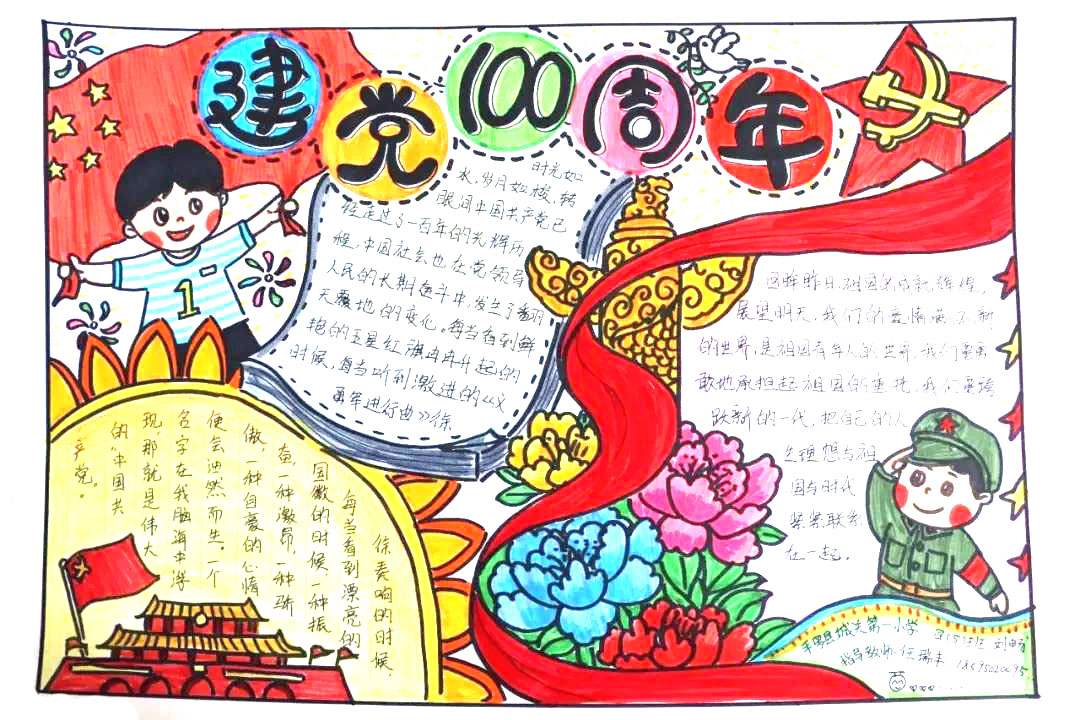 建党100周年
时光如
水,岁月如梭,转
眼间中国共产党已
经走过了一百年的光辉历
程,中国社会也在党领导
人民的长期奋斗中,发生了翻
天覆地的变化。每当看到鲜
艳的五星红旗冉冉升起的
时候,每当听到激进的《义
勇军进行曲》徐
徐奏响的时候
每当看到漂亮的
国徽的时候,一种振
奋,一种激昂,一种骄
傲,一种自豪的心情
便会油然而生,一个
名字在我脑海中浮
现,那就是伟大
的“中国共
产党。
1
回眸昨日,祖国的成就辉煌,
展望明天,我们的豪情满怀,新
的世界,是祖国青年人的世界,我们要勇
敢地承担起祖国的重托,我们要读
跃新的一代,把自己的人
生理想与祖
国与时代
紧紧联系
在一起。
城关第一小学
指导教师